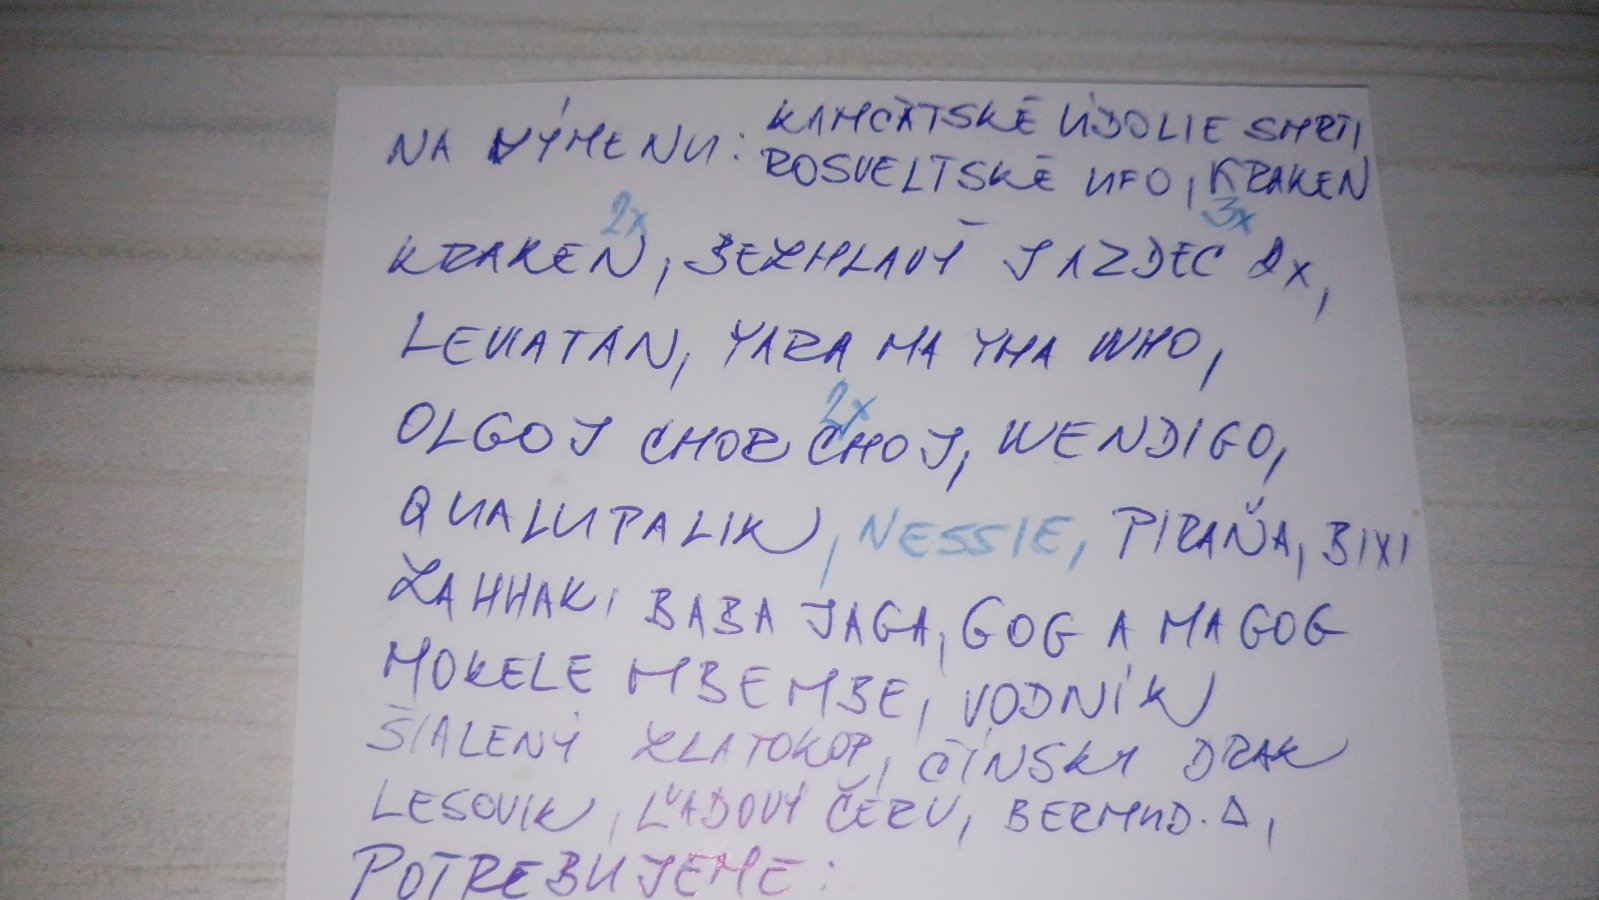 NA VÝMENU: KAMČATSKÉ ÚDOLIE SMRTI
ROSVELTSKÉ UFO, KRAKEN
2x 3x
KRAKEN, BEZHLAVÝ JAZDEC 2x,
LEVIATAN, YARA MA YHA WHO,
2x
OLGOJ CHORCHOJ, WENDIGO,
QUALUPALIK, NESSIE, PIRAŇA, BIXI
ZAHHAK, BABA JAGA, GOG A MAGOG
MOKELE MBEMBE, VODNÍK
ŠIALENÝ ZLATOKOP, ČÍNSKY DRAK
LESOVIK, ĽADOVÝ ČERV, BERMUD. Δ,
POTREBUJEME: